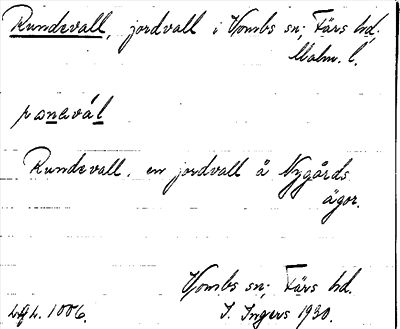 Rundevall, jordvall i Vombs sn; Färs hd.
Malm. l.
Rundevall, en jordvall å Nygårds
ägor.
Vombs sn; Färs hd.
1006. I. Ingers 1930.